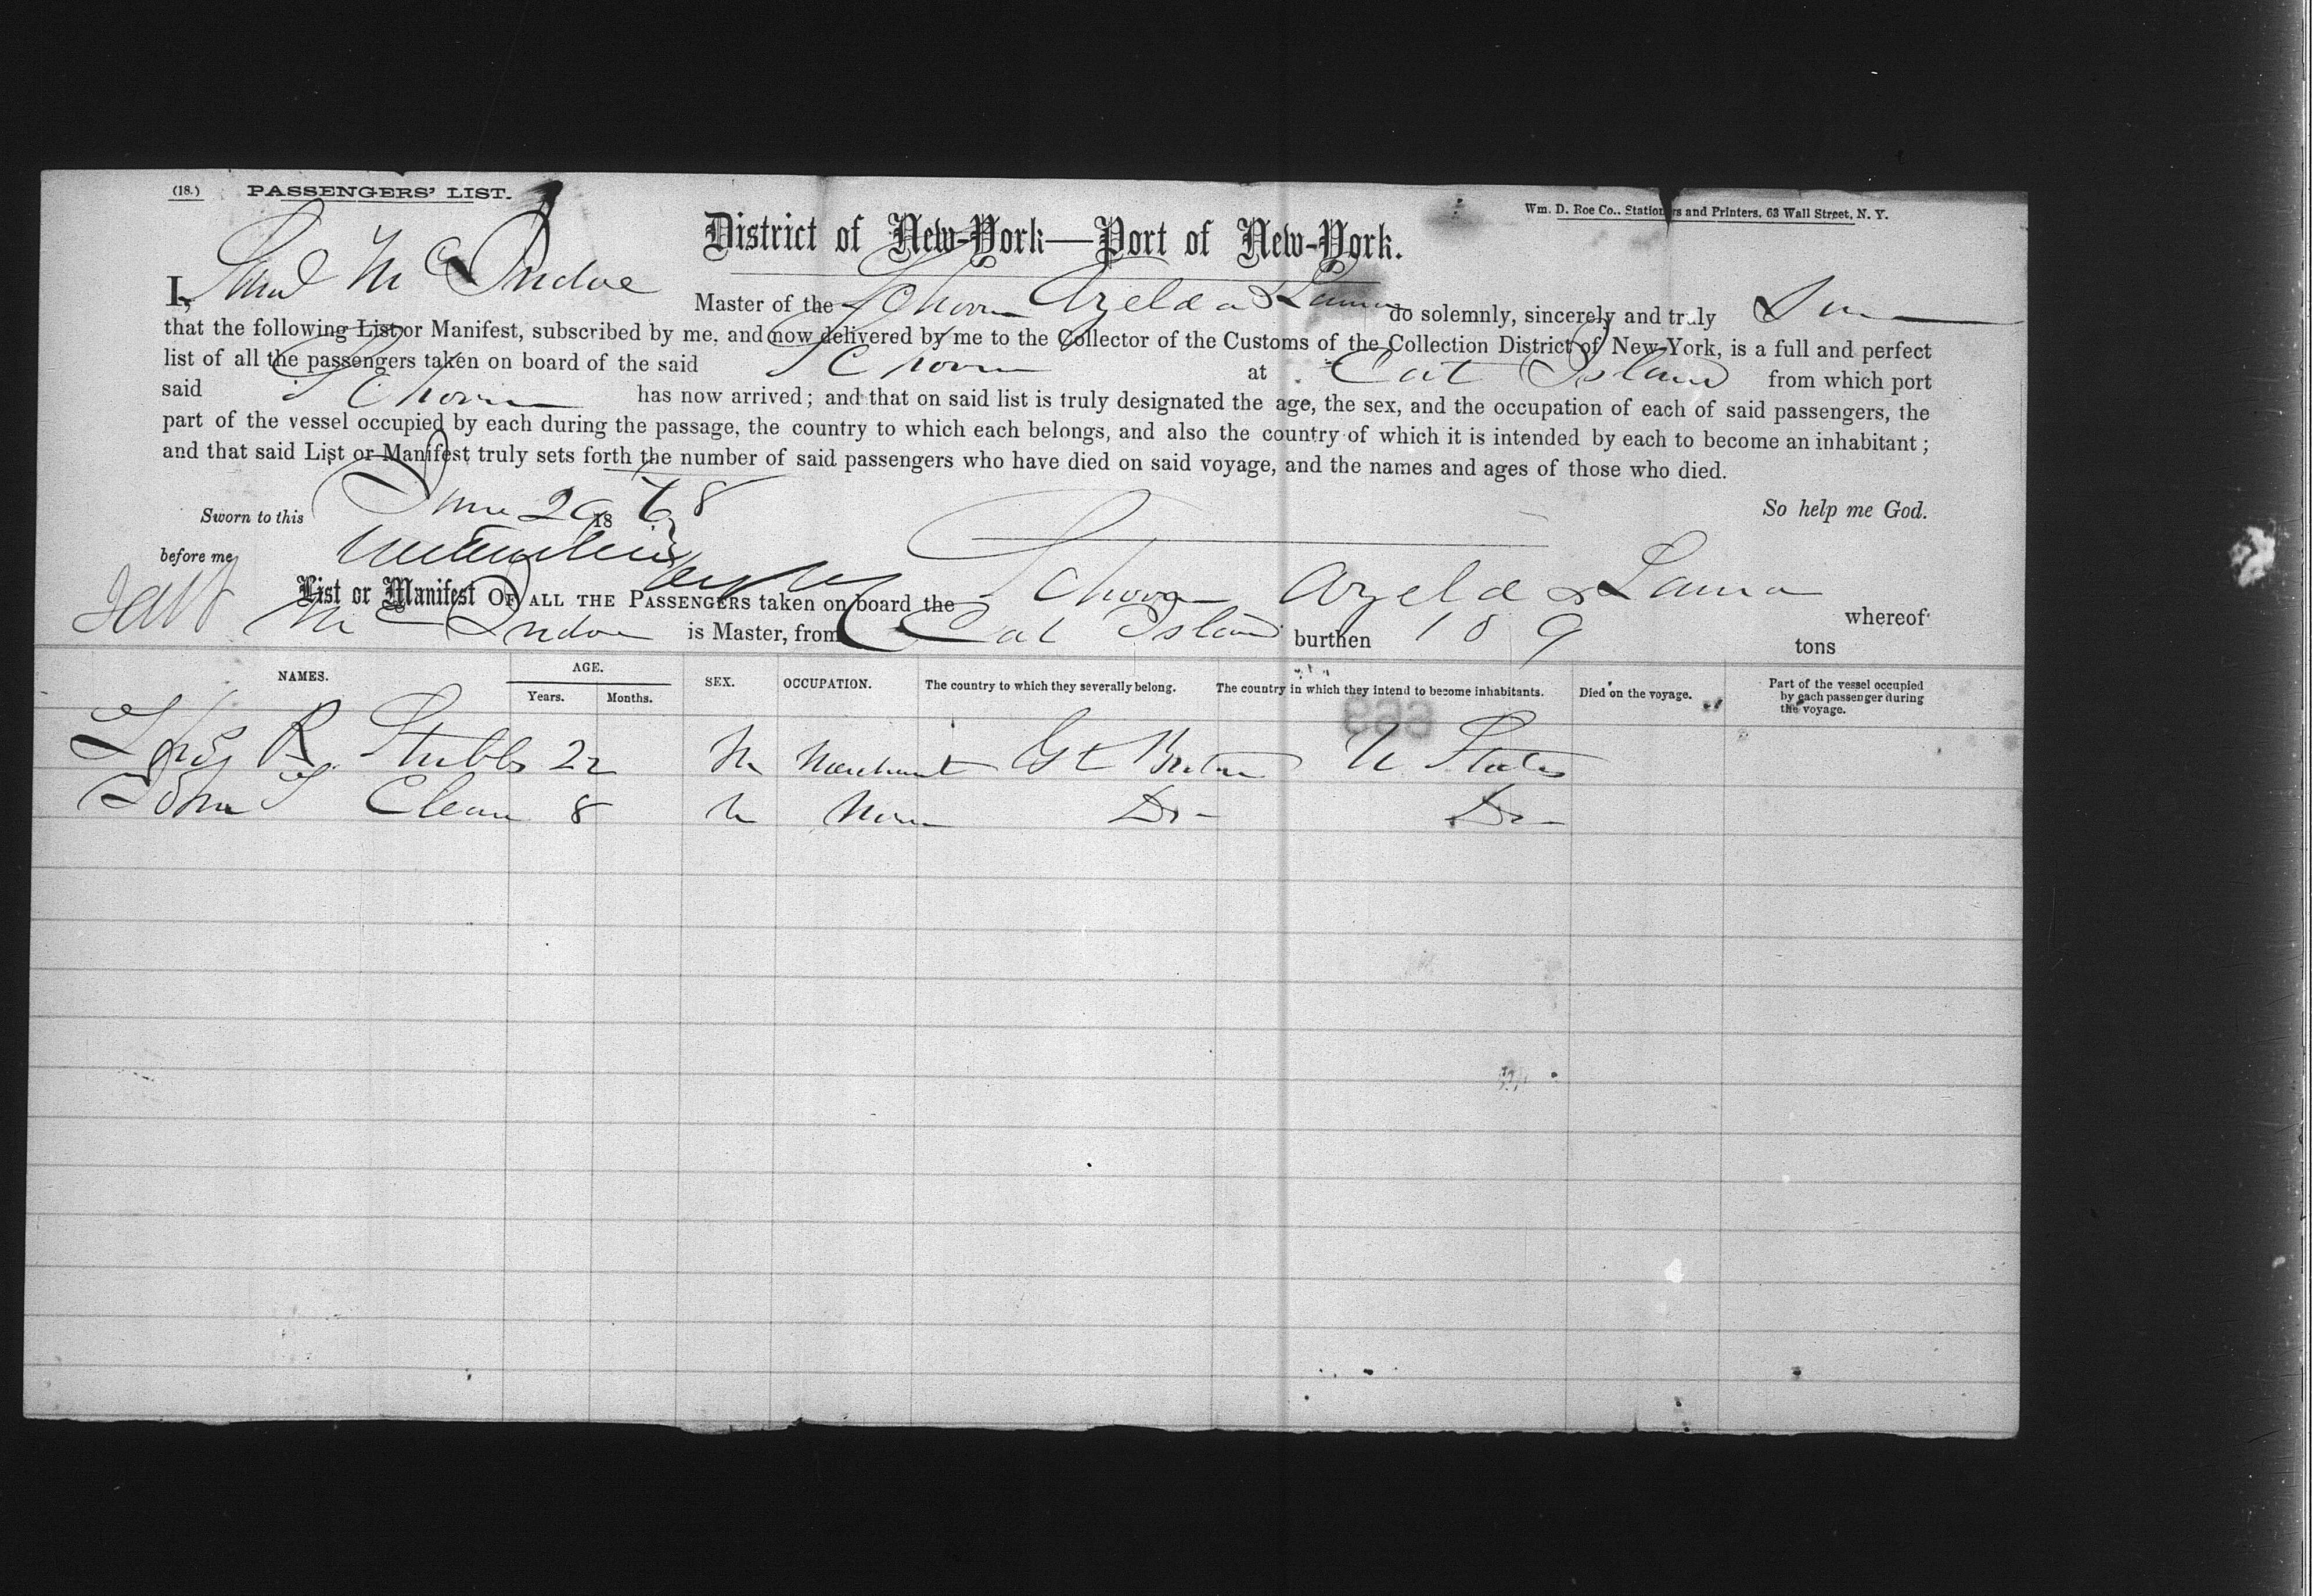 (18.) PASSENGERS' LIST.
Wm. D. Roe Co., Stationers and Printers, 63 Wall Street, N. Y.
District of New-York—Port of New-York.
I, Saml McIndoe Master of the Schoon Azelda & Laura do solemnly, sincerely and truly
that the following List or Manifest, subscribed by me, and now delivered by me to the Collector of the Customs of the Collection District of New-York, is a full and perfect
list of all the passengers taken on board of the said Schoon at Cat Island from which port
said Schoon has now arrived; and that on said list is truly designated the age, the sex, and the occupation of each of said passengers, the
part of the vessel occupied by each during the passage, the country to which each belongs, and also the country of which it is intended by each to become an inhabitant;
and that said List or Manifest truly sets forth the number of said passengers who have died on said voyage, and the names and ages of those who died.
So help me God.
Sworn to this June 18 78
before me
List or Manifest OF ALL THE PASSENGERS taken on board the Schoon Azelda & Laura whereof
McIndoe is Master, from Cat Island burthen 109 tons
NAMES. AGE. Years. Months. SEX. OCCUPATION. The country to which they severally belong. The country in which they intend to become inhabitants. Died on the voyage. Part of the vessel occupied by each passenger during the voyage.
R. Stubbs 22 M Merchant Gt Britain U States
John T Clean 8 M None Do - Do -